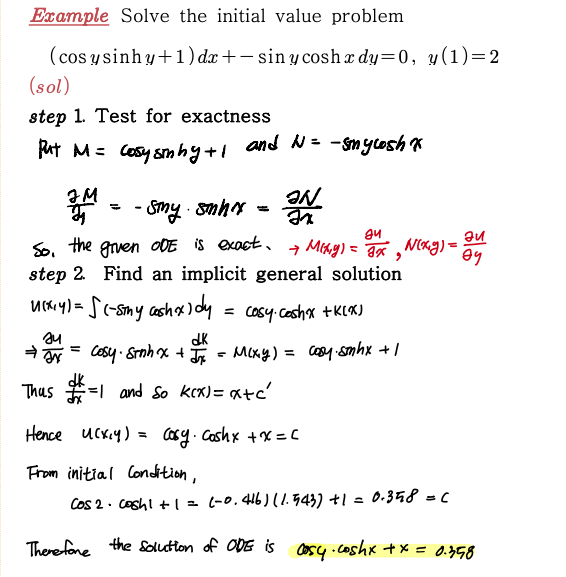 Example Solve the initial value problem
(cos y sinh y+1)dx+−sin y cosh x dy=0, y(1)=2
(sol)
step 1. Test for exactness
Put M = cosy sinhy+1 and N = -sinycosh x
∂M/∂y = -siny · sinhx = ∂N/∂x
So, the given ODE is exact. → M(x,y) = ∂u/∂x , N(x,y) = ∂u/∂y
step 2. Find an implicit general solution
u(x,y) = ∫(-siny coshx)dy = cosy·coshx +k(x)
⇒ ∂u/∂x = cosy·sinhx + dk/dx = M(x,y) = cosy·sinhx +1
Thus dk/dx =1 and so k(x)= x+c'
Hence u(x,y) = cosy·coshx +x=c
From initial condition,
cos2·cosh1 +1 = (-0.416)(1.543) +1 = 0.358 =c
Therefore the solution of ODE is cosy·coshx +x = 0.358